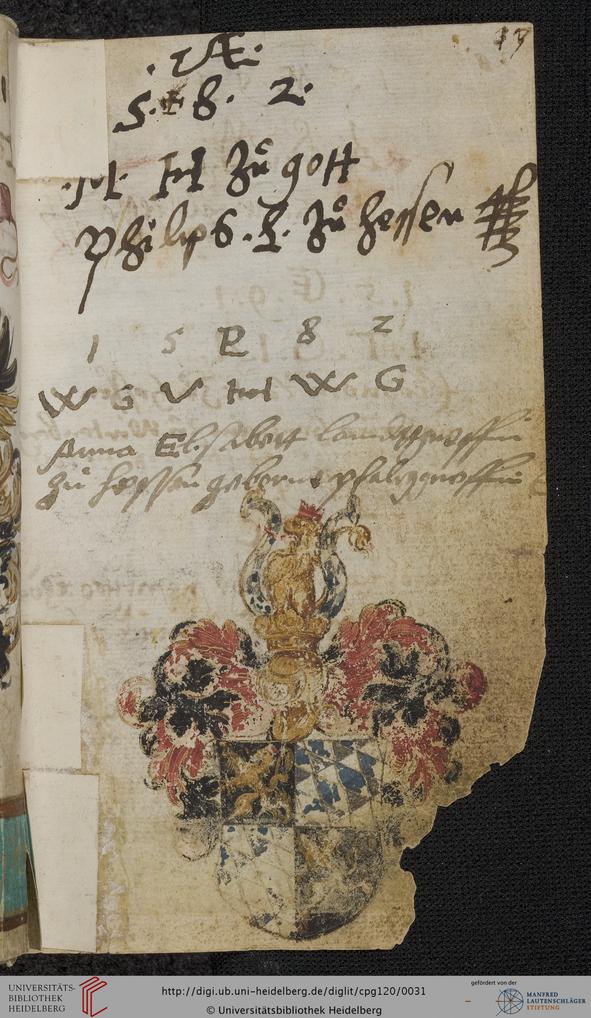 13
. Æ .
5 . 8 . 2 .
. M . H Zů gott
Philips . L . Zů Hessen
1 5 E 8 2
W G V H W G
Anna Elisabett landtgreffin
Zů Hessen geborne pfaltzgreffin
UNIVERSITÄTS-
BIBLIOTHEK
HEIDELBERG
http://digi.ub.uni-heidelberg.de/diglit/cpg120/0031
© Universitätsbibliothek Heidelberg
gefördert von der
MANFRED
LAUTENSCHLÄGER
STIFTUNG